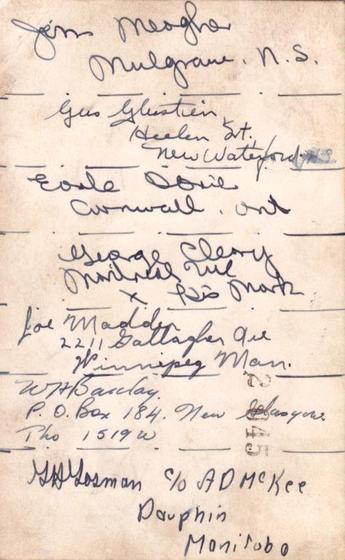 Jim Meagher
Mulgrave. N.S.
Gus
St.
New Waterford N.S.
Earle Dorie
Cornwall. Ont
George Cleary
Montreal Que
X His Mark
Joe Madden
2211 Gallagher Ave
Winnipeg Man.
W H Barclay.
P.O. Box 184. New Glasgow.
Pho 1519W
c/o A D McKee
Dauphin
Manitoba